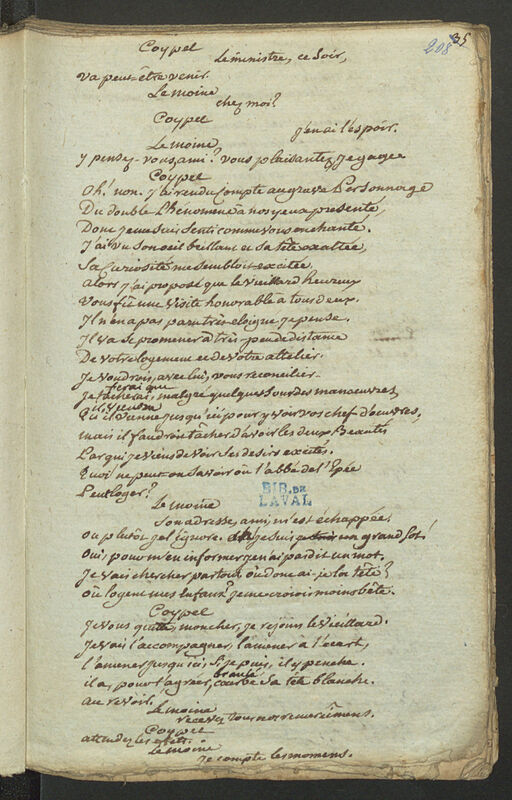 208 35
Coypel
Le ministre, ce Soir,
va peut-être venir.
Le moine
chez moi?
Coypel
j'en ai l'espoir.
Le moine
y pensez-vous, ami? vous plaisantez, je gage
Coypel
Oh! non. j'ai rendu Compte au grave Personnage
Du double Phénomene à nos yeux présenté,
Dont je me suis Senti comme vous enchanté.
J'ai vu Son oeil brillant et Sa tête exaltée,
Sa Curiosité me Sembloit excitée.
alors j'ai proposé que le vieillard heureux
Vous fît une visite honorable à tous deux.
Il n'en a pas paru très-éloigné, je pense.
Il va Se promener à très peu de distance
De votre logement et de votre attelier.
Je voudrois, avec lui, vous reconcilier.
ferai que
Je tâcherai, malgré quelques Sourdes manoeuvres,
Qu'il vienne jusqu'ici pour y voir vos chef d'oeuvres,
mais il faudroit tâcher d'avoir les deux Beautés
Par qui je viens de voir Ses desirs excités.
Quoi ne peut-on Savoir où l'abbé de l'Epée
Peut loger?
BIB. DE
LAVAL
Le moine
Son adresse, ami, m'est échappée.
ou plutôt je l'ignore. je Suis un grand Sot!
Oui, pour m'en informer je n'ai pas dit un mot.
Je vais chercher partout. où donc ai-je la tête?
où logent mes Enfans? je me croiois moins bête.
Coypel
Je vous quitte, mon cher, je rejoins le vieillard.
Je vais l'accompagner, l'amener à l'écart,
l'amener jusqu'ici, Si je puis, il y penche.
branlé
il a, pour l'agréer, courbé Sa tête blanche.
au revoir.
Le moine
recevez tous nos remercîmens.
Coypel
attendez les effets.
Le moine
Je compte les momens.